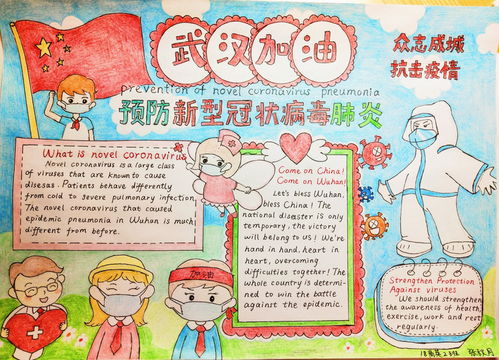 武汉加油
众志成城
抗击疫情
prevention of novel coronavirus pneumonia
预防新型冠状病毒肺炎
What is novel coronavirus
Novel coronavirus is a large class
of viruses that are known to cause
diseas. Patients behave differently
from cold to severe pulmonary infection,
The novel coronavirus that caused
epidemic pneumonia in Wuhan is much
different from before.
Come on China!
Come on Wuhan!
Let's bless Wuhan,
bless China! The
national disaster is only
temporary, the victory
will belong to us! We're
hand in hand, heart in
heart, overcoming
difficulties together! The
whole country is determi-
ned to win the battle
against the epidemic.
加油
Strengthen Protection
Against viruses
We should strengthen
the awareness of health,
exercise, work and rest
regularly.